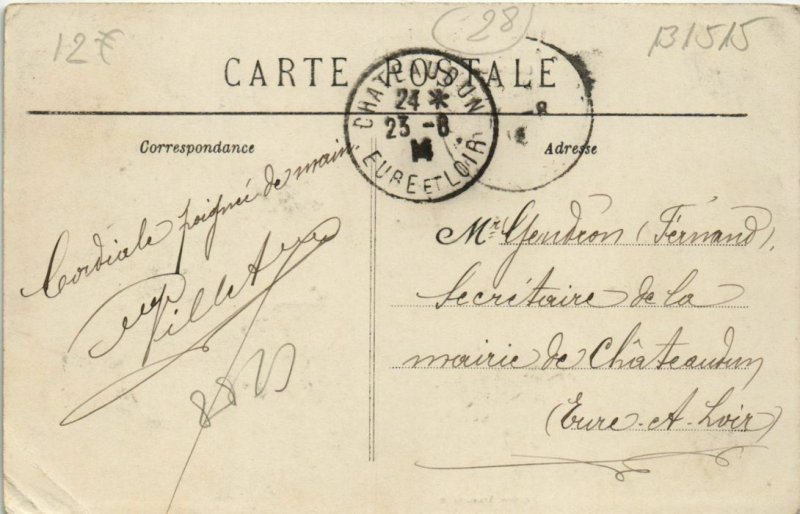 12€
28
B1515
CARTE POSTALE
CHATEAUDUN
24 *
23 - 8
14
EURE ET LOIR
Correspondance
Adresse
Cordiale poignée de main.
Pillet
Mr Gendron (Fernand),
Secrétaire de la
mairie de Châteaudun
(Eure-et-Loir)